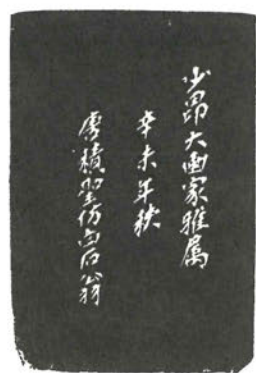 少昂大画家雅属
辛未年秋
唐积圣仿白石翁